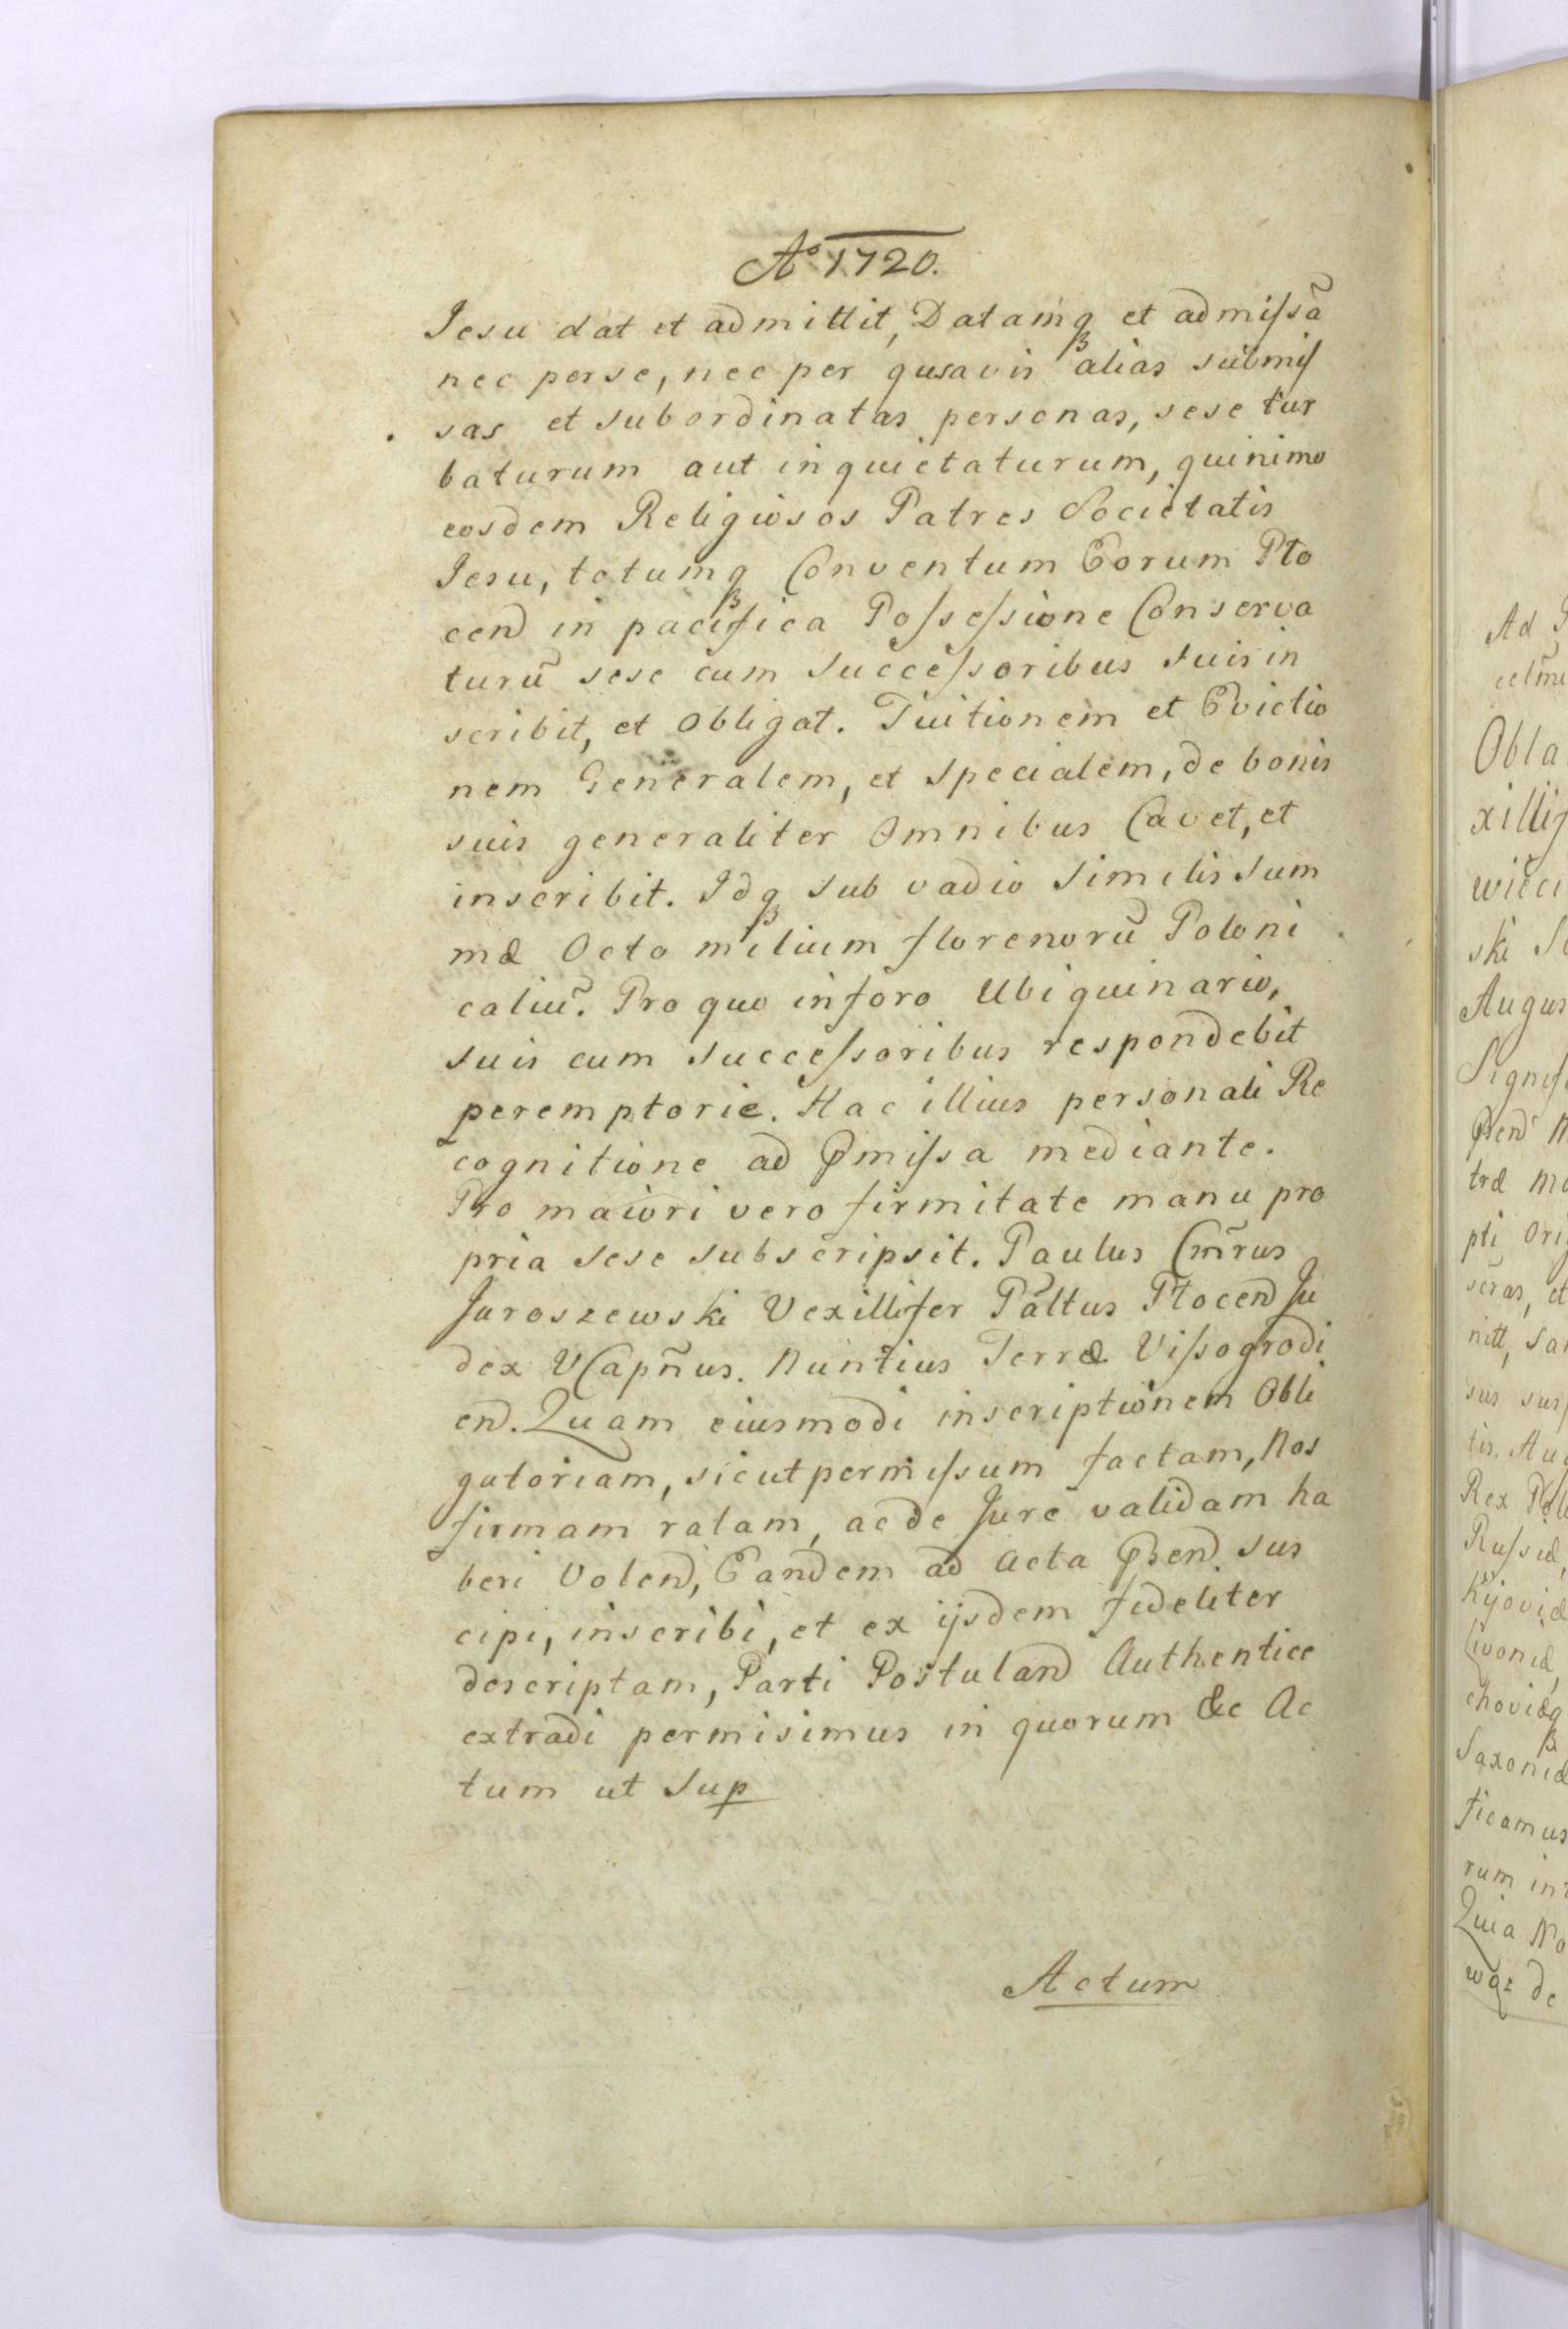 Aº 1720.
Jesu dat et admittit, Datamq₃ et admiſsã
nec per se, nec per qusavis alias submiſ
sas et subordinatas personas, sese tur
baturum aut inquietaturum, quinimo
eosdem Religiosos Patres Societatis
Jesu, totumq₃ Conventum Eorum Plo
cen̄ in pacifica Poſseſsione Conserva
turũ sese cum Succeſsoribus suis in
scribit, et Obligat. Tuitionem et Evictio
nem Generalem, et Specialem, de bonis
suis generaliter Omnibus Cavet, et
inscribit. Idq₃ sub vadio similis sum
mæ Octo milium florenorũ Poloni
caliũ. Pro quo in foro Ubiquinario,
suis cum succeſsoribus respondebit
peremptorie. Hac illius personali Re
cognitione ad Pmiſsa mediante.
Pro maiori vero firmitate manu pro
pria sese subscripsit. Paulus Cmr̃us
Jaroszewski Vexillifer Pãltus Plocen̄ Ju
dex VCapñus. Nuntius Terræ Viſsogrodi
en̄. Quam eiusmodi inscriptionem Obli
gatoriam, sicut permiſsum factam, Nos
firmam ratam, ac de Jure validam ha
beri Volen̄, Eandem ad Acta Psen̄ sus
cipi, inscribi, et ex ijsdem fideliter
descriptam, Parti Postulan̄ Authentice
extradi permisimus in quorum &c Ac
tum ut Sup
Actum
Obla
xillif
wieci
ski
Augus
Signifi
Psen̄
træ
pti
scras, et
nitt,
sus
tis. Aug
Rex Pol
Ruſsiæ,
Kijoviæ
Livoniæ,
choviæq₃
Saxoniæ
ficamus
rum in
Quia No
de